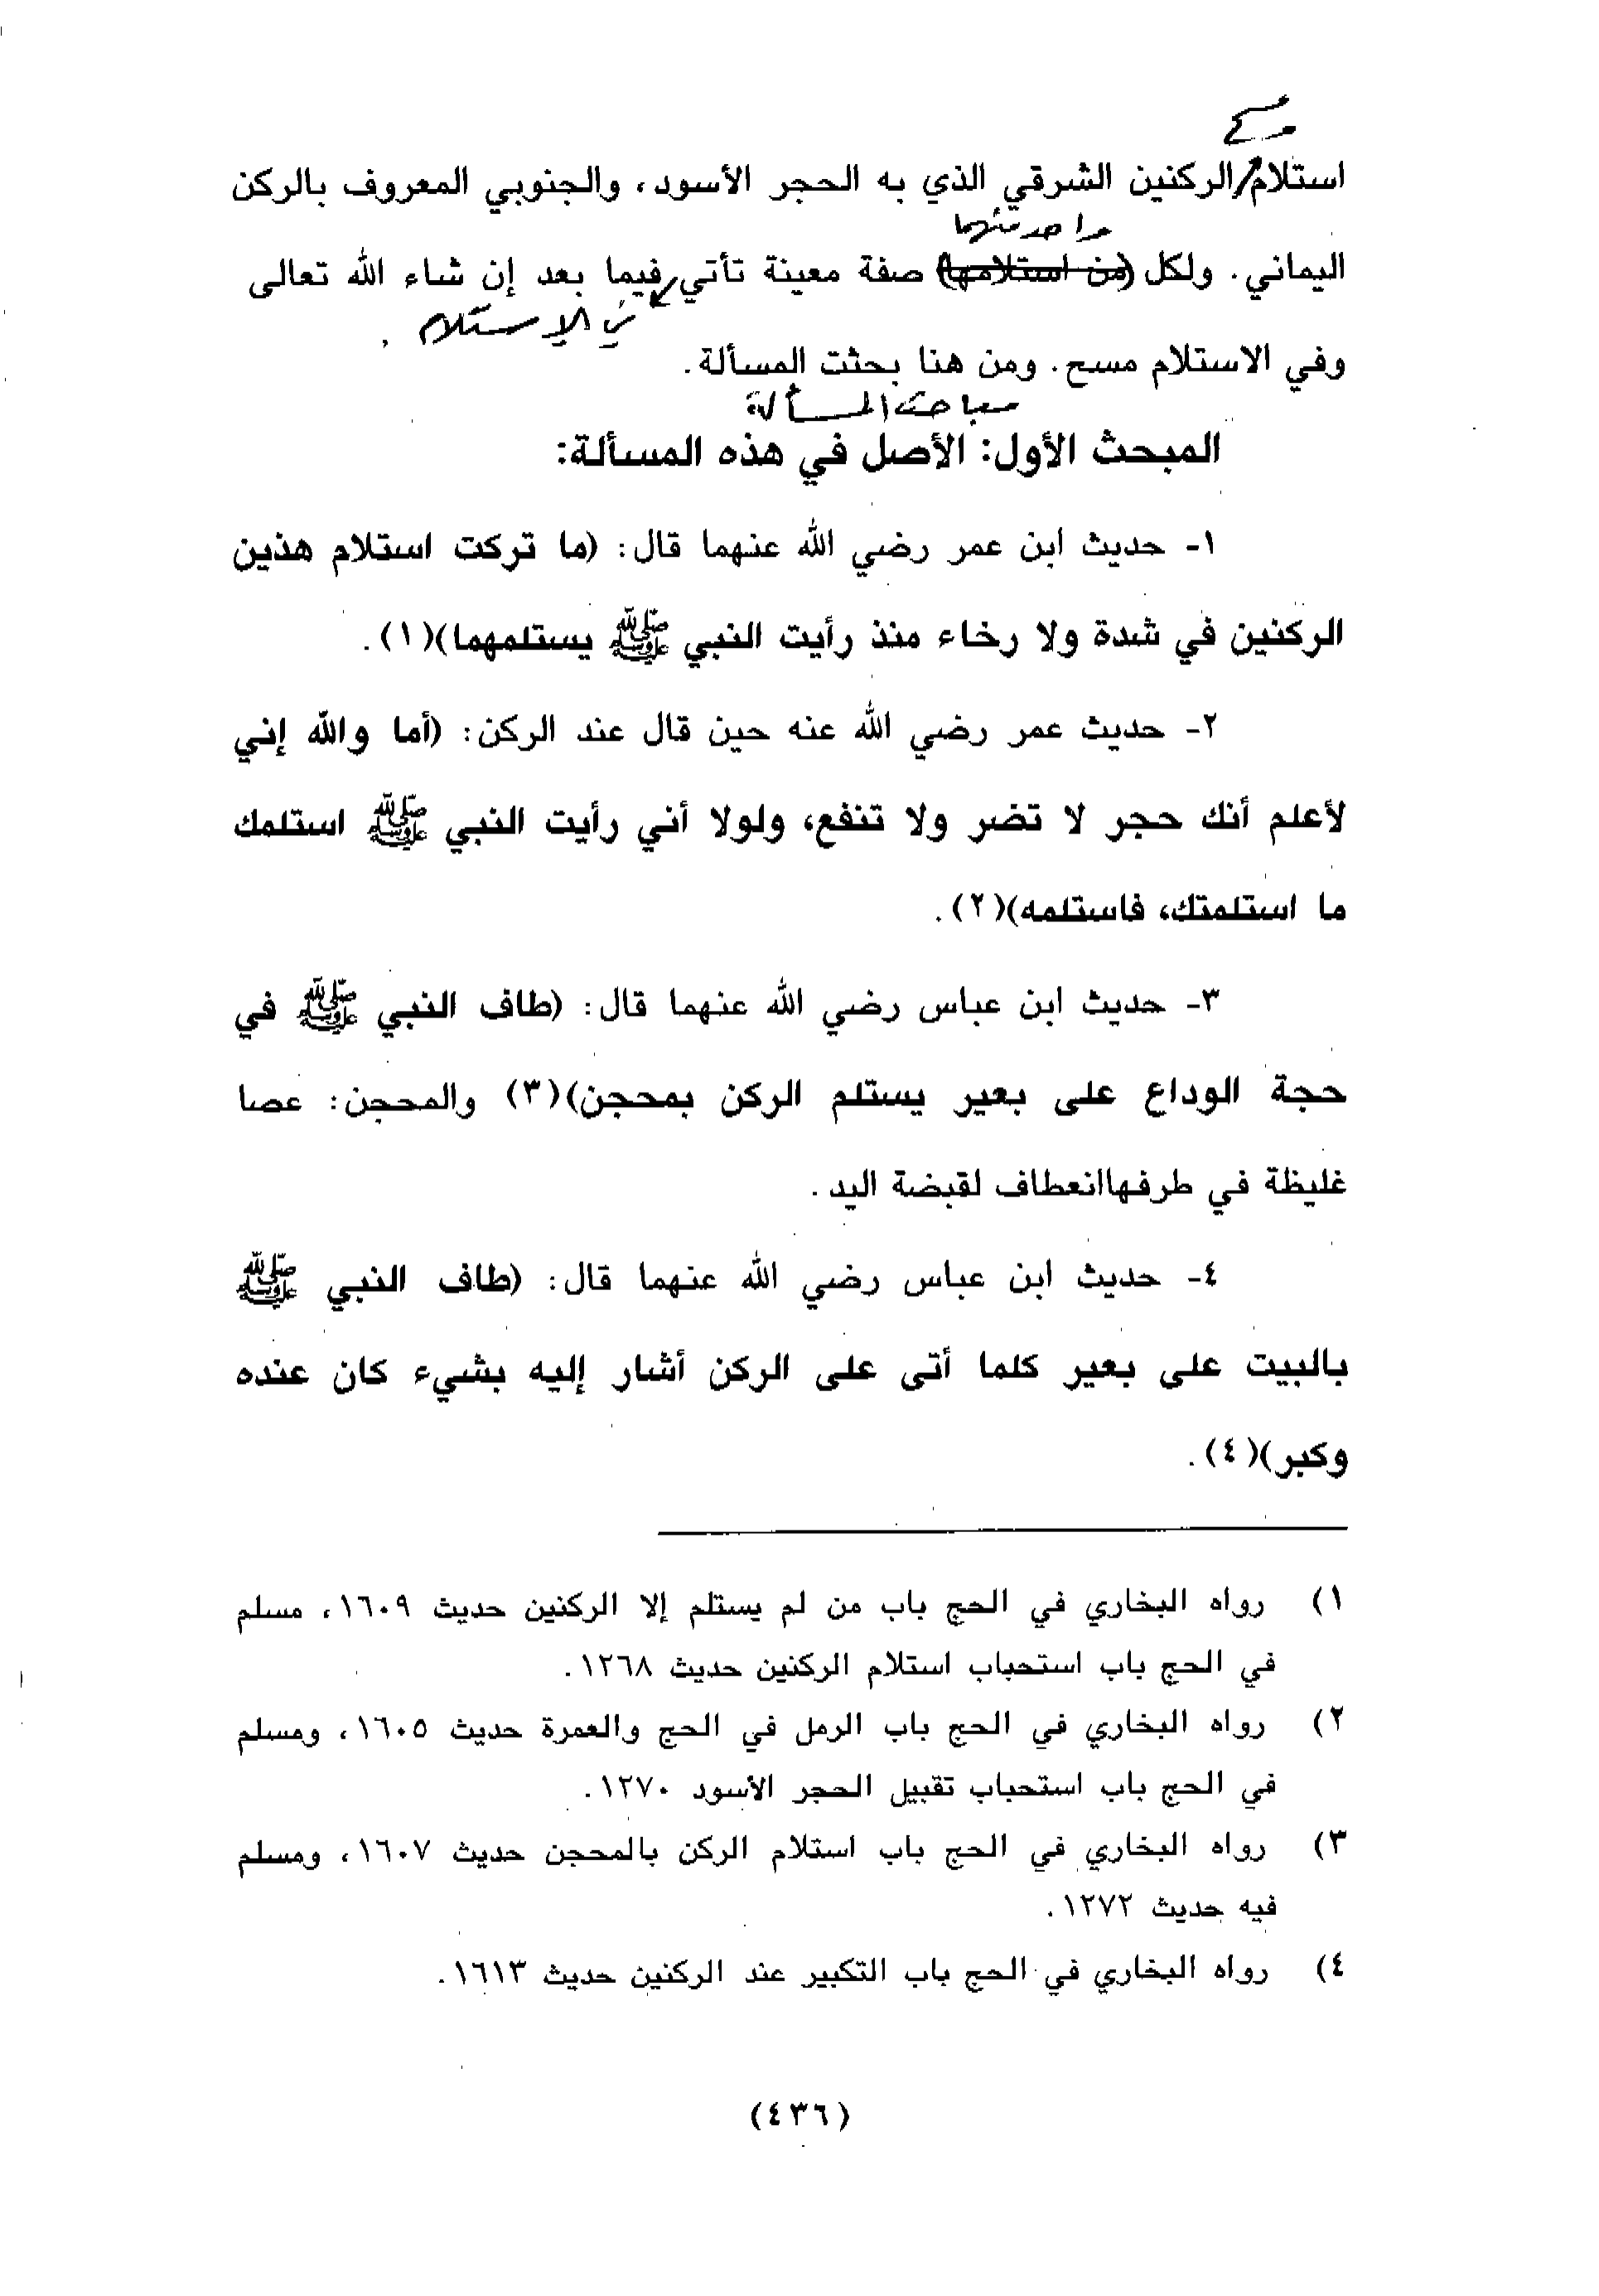 استلام/الركنين الشرقي الذي به الحجر الأسود، والجنوبي المعروف بالركن
واحد منهما
اليماني. ولكل (من استلامها) صفة معينة تأتي فيما بعد إن شاء الله تعالى
في الاستلام .
وفي الاستلام مسح. ومن هنا بحثت المسألة.
مباحث المسألة
المبحث الأول: الأصل في هذه المسألة:
١- حديث ابن عمر رضي الله عنهما قال: (ما تركت استلام هذين
الركنين في شدة ولا رخاء منذ رأيت النبي ﷺ يستلمهما)(١).
٢- حديث عمر رضي الله عنه حين قال عند الركن: (أما والله إني
لأعلم أنك حجر لا تضر ولا تنفع، ولولا أني رأيت النبي ﷺ استلمك
ما استلمتك، فاستلمه)(٢).
٣- حديث ابن عباس رضي الله عنهما قال: (طاف النبي ﷺ في
حجة الوداع على بعير يستلم الركن بمحجن)(٣) والمحجن: عصا
غليظة في طرفهاانعطاف لقبضة اليد.
٤- حديث ابن عباس رضي الله عنهما قال: (طاف النبي ﷺ
بالبيت على بعير كلما أتى على الركن أشار إليه بشيء كان عنده
وكبر)(٤).
١) رواه البخاري في الحج باب من لم يستلم إلا الركنين حديث ١٦٠٩، مسلم
في الحج باب استحباب استلام الركنين حديث ١٢٦٨.
٢) رواه البخاري في الحج باب الرمل في الحج والعمرة حديث ١٦٠٥، ومسلم
في الحج باب استحباب تقبيل الحجر الأسود ١٢٧٠.
٣) رواه البخاري في الحج باب استلام الركن بالمحجن حديث ١٦٠٧، ومسلم
فيه حديث ١٢٧٢.
٤) رواه البخاري في الحج باب التكبير عند الركنين حديث ١٦١٣.
(٤٣٦)